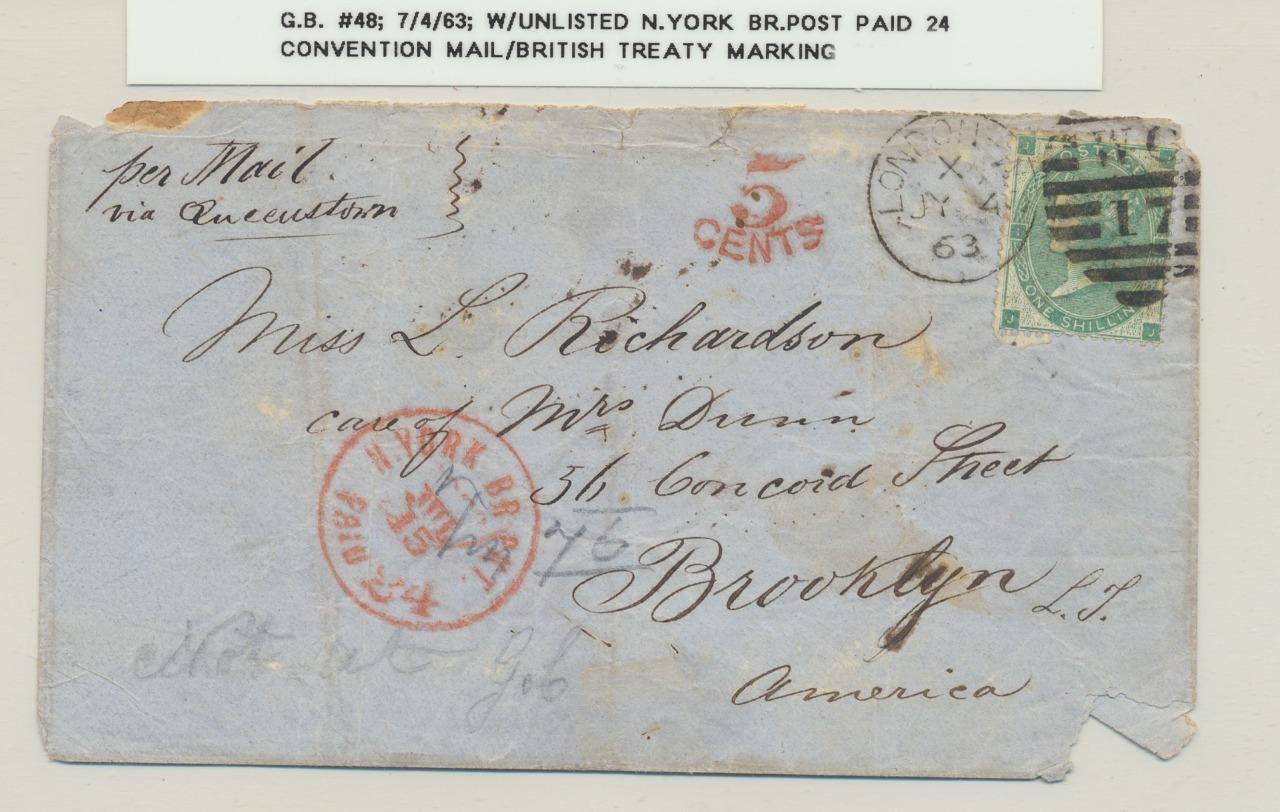 G.B. #48; 7/4/63; W/UNLISTED N.YORK BR.POST PAID 24
CONVENTION MAIL/BRITISH TREATY MARKING
per Mail.
via Queenstown
5
CENTS
LONDON
X
JY 4
63
W C
17
POSTAGE
ONE SHILLING
J J
Miss L. Richardson
care of Mrs Dunn
56 Concord Street
Brooklyn L.I.
America
N.YORK BR PKT.
JUL
15
PAID 24
76
Not at 96